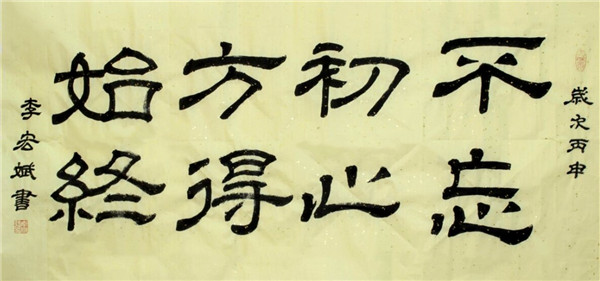 歲次丙申
不忘
初心
方得
始終
李宏斌書